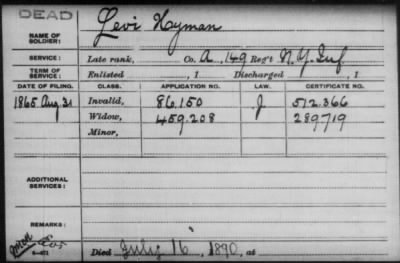 DEAD
NAME OF SOLDIER: Levi Hyman
SERVICE: Late rank, Co. A, 149 Reg't N.Y. Inf.
TERM OF SERVICE: Enlisted , 1 Discharged , 1
DATE OF FILING. CLASS. APPLICATION NO. LAW. CERTIFICATE NO.
1865 Aug. 31 Invalid, 86.150 J. 512.366
Widow, 459.208 289719
Minor,
ADDITIONAL SERVICES:
REMARKS:
Died July 16, 1890, at